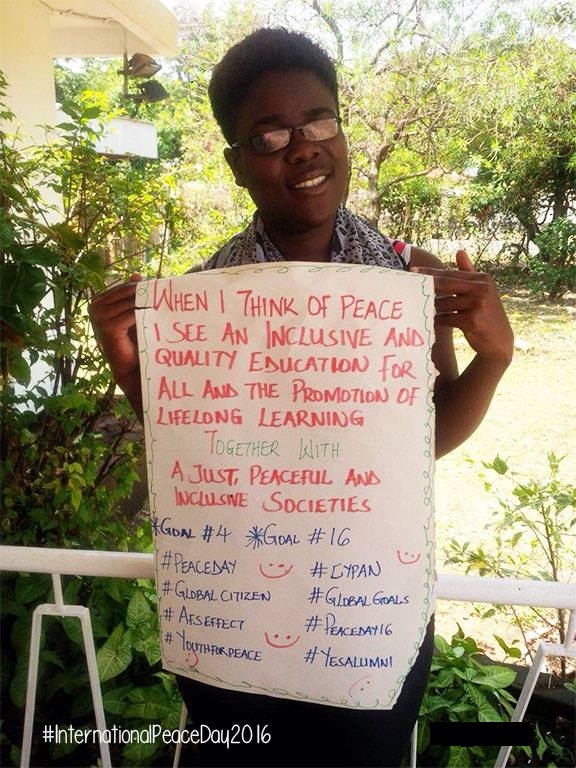 WHEN I THINK OF PEACE
I SEE AN INCLUSIVE AND
QUALITY EDUCATION FOR
ALL AND THE PROMOTION OF
LIFELONG LEARNING
TOGETHER WITH
A JUST, PEACEFUL AND
INCLUSIVE SOCIETIES
*GOAL #4 *GOAL #16
#PEACEDAY #CYPAN
#GLOBAL CITIZEN #GLOBAL GOALS
#AFSEFFECT #PEACEDAY16
#YOUTHFORPEACE #YESALUMNI
#InternationalPeaceDay2016